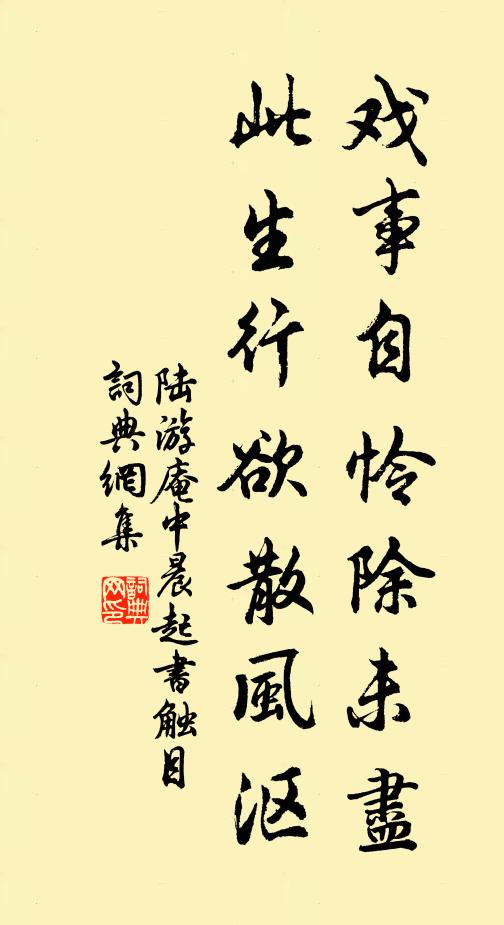 戏事自怜除未盡
此生行欲散風沤
陆游庵中晨起書触目
詞典網集
詞典网印